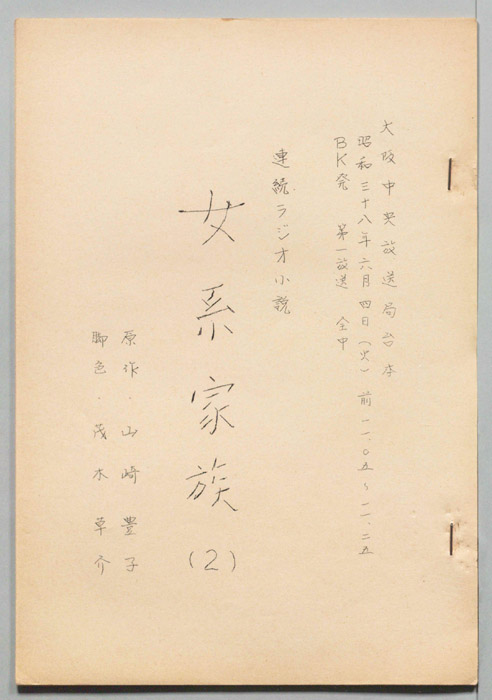 大阪中央放送局台本
昭和三十八年六月四日(火) 前一一.〇五~一一.二五
BK発 第一放送 全中
連続ラジオ小説
女系家族(2)
原作.山崎豊子
脚色.茂木草介